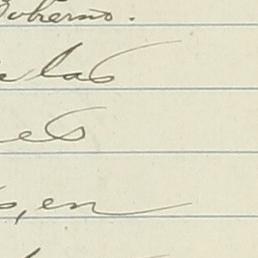 Gobierno.
a las
es
s, en